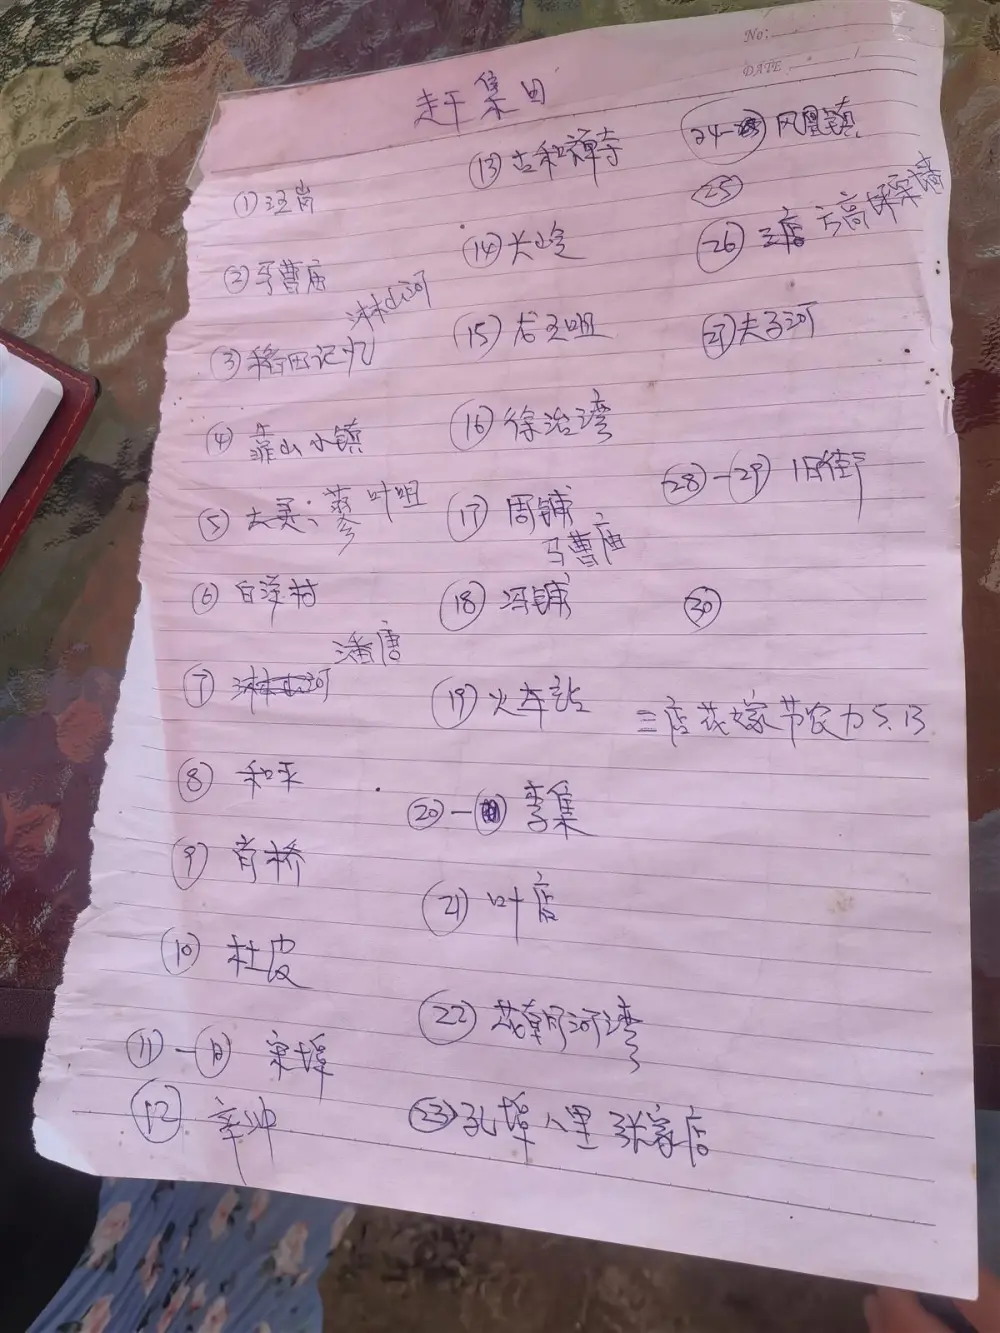 No:
DATE
赶集日
①汪岗
②马曹庙
淋山河
③稻田记忆
④靠山小镇
⑤ 叶咀
⑥白洋村
潘唐
⑦淋山河
⑧和平
⑨肖桥
⑩杜皮
⑪—⑪宋埠
⑫辛冲
⑬古和禅寺
⑭大岭
⑮龙王咀
⑯徐治湾
⑰周铺
马曹庙
⑱冯铺
⑲火车站
⑳— 李集
㉑叶店
㉒花朝河湾
㉓孔埠 八里 张家店
㉔— 凤凰镇
㉕
㉖三店 高
㉗夫子河
㉘—㉙旧街
㉚
三店花嫁节农历5.13